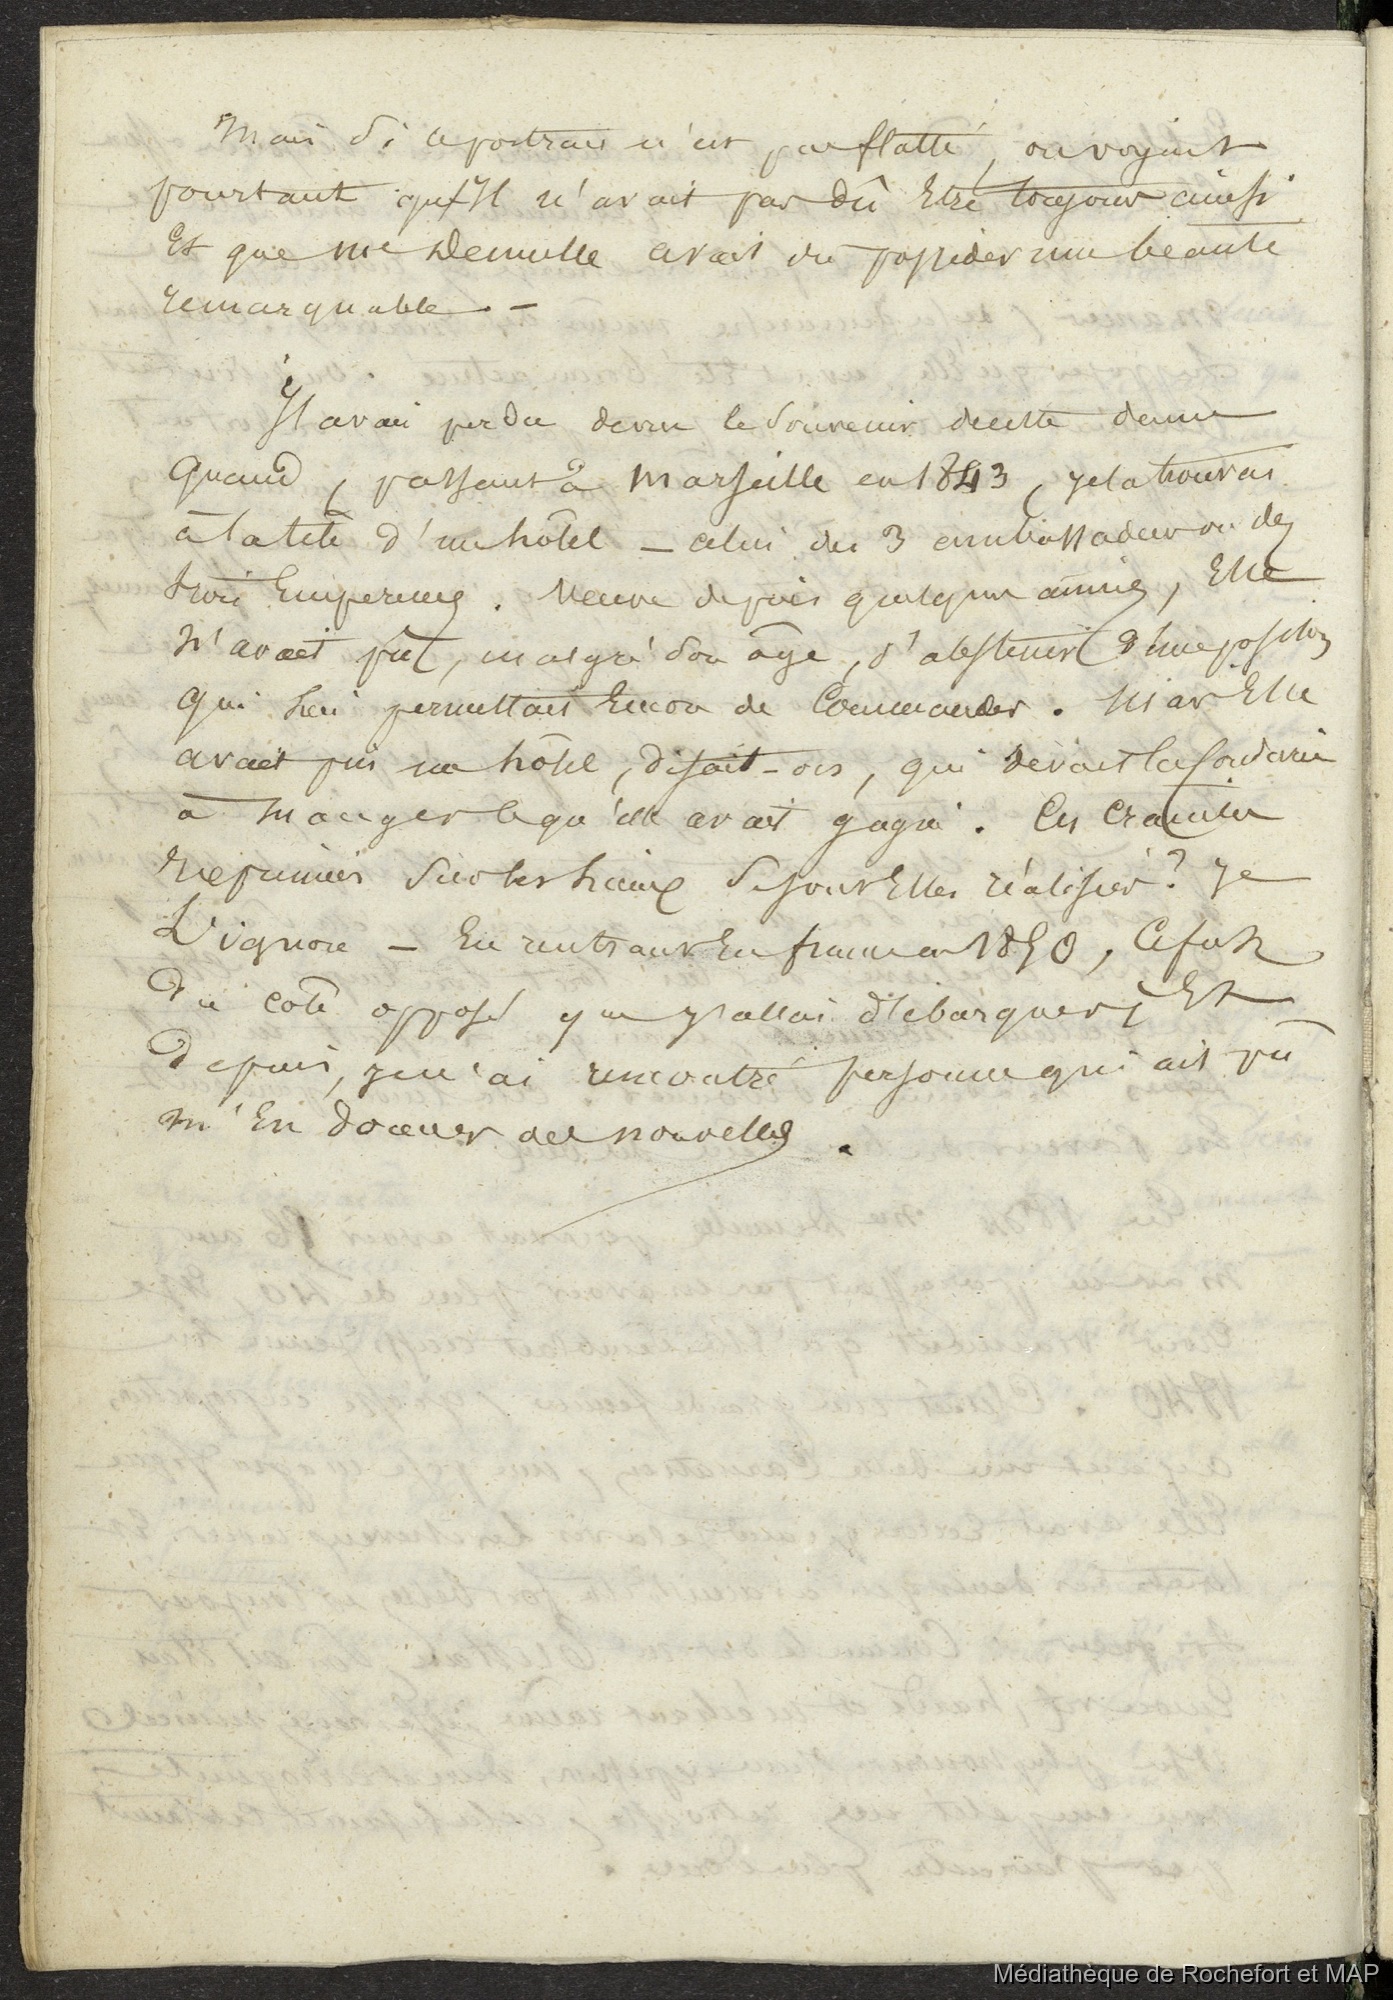 Mais Si le portrait n'est pas flatté, on voyait
pourtant qu'Il n'avait pas dû Etre toujours ainsi
Et que me Demulle avait du posséder une beauté
remarquable. -
J'avais perdu de vue le Souvenir de cette dame
quand, passant à Marseille en 1843, je la trouvai
à la tête d'un hôtel - celui des 3 ambassadeurs ou des
trois Empereurs. Veuve depuis quelques années, Elle
n'avait pu, malgré Son âge, s'abstenir d'une position
qui lui permettait Encore de Commander. Elle
avait pris un hôtel, disait-on, qui devait la
à manger ce qu'elle avait gagné. Ces craintes
Se sont Elles réalisées? Je
L'ignore - En rentrant En france en 1850, Ce fut
Du coté opposé que J'allai débarquer; Et
Depuis, je n'ai rencontré personne qui ait pû
m'En donner des nouvelles.
Médiathèque de Rochefort et MAP